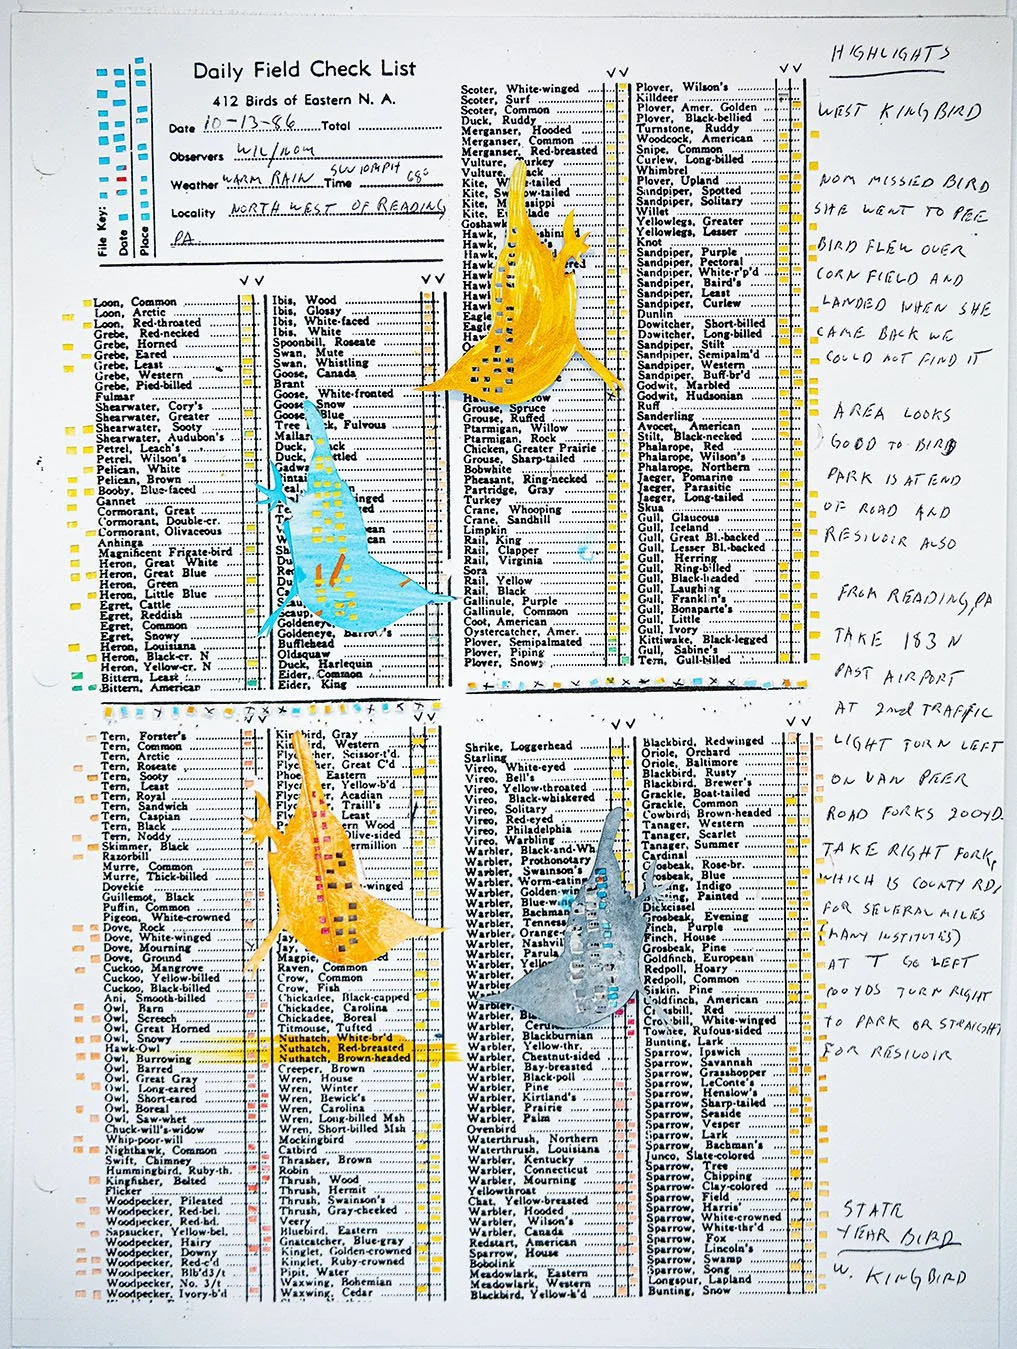 Daily Field Check List
412 Birds of Eastern N. A.
Date 10-13-86 Total
Observers WIL/MOM
Weather WARM RAIN SW 10MPH Time 68°
Locality NORTH WEST OF READING,
PA.
File Key:
Date
Place
Loon, Common
Loon, Arctic
Loon, Red-throated
Grebe, Red-necked
Grebe, Horned
Grebe, Eared
Grebe, Least
Grebe, Western
Grebe, Pied-billed
Fulmar
Shearwater, Cory's
Shearwater, Greater
Shearwater, Sooty
Shearwater, Audubon's
Petrel, Leach's
Petrel, Wilson's
Pelican, White
Pelican, Brown
Booby, Blue-faced
Gannet
Cormorant, Great
Cormorant, Double-cr.
Cormorant, Olivaceous
Anhinga
Magnificent Frigate-bird
Heron, Great White
Heron, Great Blue
Heron, Green
Heron, Little Blue
Egret, Cattle
Egret, Reddish
Egret, Common
Egret, Snowy
Heron, Louisiana
Heron, Black-cr. N
Heron, Yellow-cr. N
Bittern, Least
Bittern, American
Ibis, Wood
Ibis, Glossy
Ibis, White-faced
Ibis, White
Spoonbill, Roseate
Swan, Mute
Swan, Whistling
Goose, Canada
Brant
Goose, White-fronted
Goose, Snow
Goose, Blue
Tree Fulvous
Mallar
Duck,
Duck,
Gadwa
Goldeneye,
Goldeneye, Barrow's
Bufflehead
Oldsquaw
Duck, Harlequin
Eider, Common
Eider, King
Scoter, White-winged
Scoter, Surf
Scoter, Common
Duck, Ruddy
Merganser, Hooded
Merganser, Common
Merganser, Red-breasted
Vulture, Turkey
Vulture,
Kite,
Kite,
Kite,
Kite,
Goshawk
Hawk,
Hawk,
Hawk,
Hawk,
Eagle
Eagle
Grouse, Spruce
Grouse, Ruffed
Ptarmigan, Willow
Ptarmigan, Rock
Chicken, Greater Prairie
Grouse, Sharp-tailed
Bobwhite
Pheasant, Ring-necked
Partridge, Gray
Turkey
Crane, Whooping
Crane, Sandhill
Limpkin
Rail, King
Rail, Clapper
Rail, Virginia
Sora
Rail, Yellow
Rail, Black
Gallinule, Purple
Gallinule, Common
Coot, American
Oystercatcher, Amer.
Plover, Semipalmated
Plover, Piping
Plover, Snowy
Plover, Wilson's
Killdeer
Plover, Amer. Golden
Plover, Black-bellied
Turnstone, Ruddy
Woodcock, American
Snipe, Common
Curlew, Long-billed
Whimbrel
Plover, Upland
Sandpiper, Spotted
Sandpiper, Solitary
Willet
Yellowlegs, Greater
Yellowlegs, Lesser
Knot
Sandpiper, Purple
Sandpiper, Pectoral
Sandpiper, White-r'p'd
Sandpiper, Baird's
Sandpiper, Least
Sandpiper, Curlew
Dunlin
Dowitcher, Short-billed
Dowitcher, Long-billed
Sandpiper, Stilt
Sandpiper, Semipalm'd
Sandpiper, Western
Sandpiper, Buff-br'd
Godwit, Marbled
Godwit, Hudsonian
Ruff
Sanderling
Avocet, American
Stilt, Black-necked
Phalarope, Red
Phalarope, Wilson's
Phalarope, Northern
Jaeger, Pomarine
Jaeger, Parasitic
Jaeger, Long-tailed
Skua
Gull, Glaucous
Gull, Iceland
Gull, Great Bl.-backed
Gull, Lesser Bl.-backed
Gull, Herring
Gull, Ring-billed
Gull, Black-headed
Gull, Laughing
Gull, Franklin's
Gull, Bonaparte's
Gull, Little
Gull, Ivory
Kittiwake, Black-legged
Gull, Sabine's
Tern, Gull-billed
Tern, Forster's
Tern, Common
Tern, Arctic
Tern, Roseate
Tern, Sooty
Tern, Least
Tern, Royal
Tern, Sandwich
Tern, Caspian
Tern, Black
Tern, Noddy
Skimmer, Black
Razorbill
Murre, Common
Murre, Thick-billed
Dovekie
Guillemot, Black
Puffin, Common
Pigeon, White-crowned
Dove, Rock
Dove, White-winged
Dove, Mourning
Dove, Ground
Cuckoo, Mangrove
Cuckoo, Yellow-billed
Cuckoo, Black-billed
Ani, Smooth-billed
Owl, Barn
Owl, Screech
Owl, Great Horned
Owl, Snowy
Hawk-Owl
Owl, Burrowing
Owl, Barred
Owl, Great Gray
Owl, Long-eared
Owl, Short-eared
Owl, Boreal
Owl, Saw-whet
Chuck-will's-widow
Whip-poor-will
Nighthawk, Common
Swift, Chimney
Hummingbird, Ruby-th.
Kingfisher, Belted
Flicker
Woodpecker, Pileated
Woodpecker, Red-bel.
Woodpecker, Red-hd.
Sapsucker, Yellow-bel.
Woodpecker, Hairy
Woodpecker, Downy
Woodpecker, Red-c'd
Woodpecker, Blb'd3/t
Woodpecker, No. 3/t
Woodpecker, Ivory-b'd
Kingbird, Gray
Kingbird, Western
Scissor-t'd.
Great C'd
Phoe Eastern
Flyc Yellow-b'd
Flyc Acadian
Flyc Traill's
Least
Wood
Olive-sided
Vermillion
-winged
Jay,
Jay,
Magpie,
Raven, Common
Crow, Common
Crow, Fish
Chickadee, Black-capped
Chickadee, Carolina
Chickadee, Boreal
Titmouse, Tufted
Nuthatch, White-br'd
Nuthatch, Red-breasted
Nuthatch, Brown-headed
Creeper, Brown
Wren, House
Wren, Winter
Wren, Bewick's
Wren, Carolina
Wren, Long-billed Msh
Wren, Short-billed Msh
Mockingbird
Catbird
Thrasher, Brown
Robin
Thrush, Wood
Thrush, Hermit
Thrush, Swainson's
Thrush, Gray-cheeked
Veery
Bluebird, Eastern
Gnatcatcher, Blue-gray
Kinglet, Golden-crowned
Kinglet, Ruby-crowned
Pipit, Water
Waxwing, Bohemian
Waxwing, Cedar
Shrike, Loggerhead
Starling
Vireo, White-eyed
Vireo, Bell's
Vireo, Yellow-throated
Vireo, Black-whiskered
Vireo, Solitary
Vireo, Red-eyed
Vireo, Philadelphia
Vireo, Warbling
Warbler, Black-and-Wh
Warbler, Prothonotary
Warbler, Swainson's
Warbler, Worm-eating
Warbler, Golden-win
Warbler, Blue-w
Warbler, Bachman
Warbler, Tenness
Warbler, Orange-
Warbler, Nashvil
Warbler, Parula
Warbler, Yellow
Warbler,
Warbler,
Warbler,
Warbler, Bl
Warbler, Cerul
Warbler, Blackburnian
Warbler, Yellow-thr.
Warbler, Chestnut-sided
Warbler, Bay-breasted
Warbler, Black-poll
Warbler, Pine
Warbler, Kirtland's
Warbler, Prairie
Warbler, Palm
Ovenbird
Waterthrush, Northern
Waterthrush, Louisiana
Warbler, Kentucky
Warbler, Connecticut
Warbler, Mourning
Yellowthroat
Chat, Yellow-breasted
Warbler, Hooded
Warbler, Wilson's
Warbler, Canada
Redstart, American
Sparrow, House
Bobolink
Meadowlark, Eastern
Meadowlark, Western
Blackbird, Yellow-h'd
Blackbird, Redwinged
Oriole, Orchard
Oriole, Baltimore
Blackbird, Rusty
Blackbird, Brewer's
Grackle, Boat-tailed
Grackle, Common
Cowbird, Brown-headed
Tanager, Western
Tanager, Scarlet
Tanager, Summer
Cardinal
Grosbeak, Rose-br.
Grosbeak, Blue
Indigo
Painted
Dickcissel
Grosbeak, Evening
Finch, Purple
Finch, House
Grosbeak, Pine
Goldfinch, European
Redpoll, Hoary
Redpoll, Common
Siskin, Pine
Goldfinch, American
Crossbill, Red
Crossbill, White-winged
Towhee, Rufous-sided
Bunting, Lark
Sparrow, Ipswich
Sparrow, Savannah
Sparrow, Grasshopper
Sparrow, LeConte's
Sparrow, Henslow's
Sparrow, Sharp-tailed
Sparrow, Seaside
Sparrow, Vesper
Sparrow, Lark
Sparrow, Bachman's
Junco, Slate-colored
Sparrow, Tree
Sparrow, Chipping
Sparrow, Clay-colored
Sparrow, Field
Sparrow, Harris'
Sparrow, White-crowned
Sparrow, White-thr'd
Sparrow, Fox
Sparrow, Lincoln's
Sparrow, Swamp
Sparrow, Song
Longspur, Lapland
Bunting, Snow
HIGHLIGHTS
WEST KINGBIRD
MOM MISSIED BIRD
SHE WENT TO PEE
BIRD FLEW OVER
CORN FIELD AND
LANDED WHEN SHE
CAME BACK WE
COULD NOT FIND IT
AREA LOOKS
GOOD TO BIRD
PARK IS AT END
OF ROAD AND
RESIVOIR ALSO
FROM READING, PA
TAKE 183 N
PAST AIRPORT
AT 2nd TRAFFIC
LIGHT TURN LEFT
ON VAN PEER
ROAD FORKS 200YD.
TAKE RIGHT FORK,
WHICH IS COUNTY RD,
FOR SEVERAL MILES
(MANY INSTITUTES)
AT T GO LEFT
100 YDS TURN RIGHT
TO PARK OR STRAIGHT
FOR RESIVOIR
STATE
YEAR BIRD
W. KINGBIRD